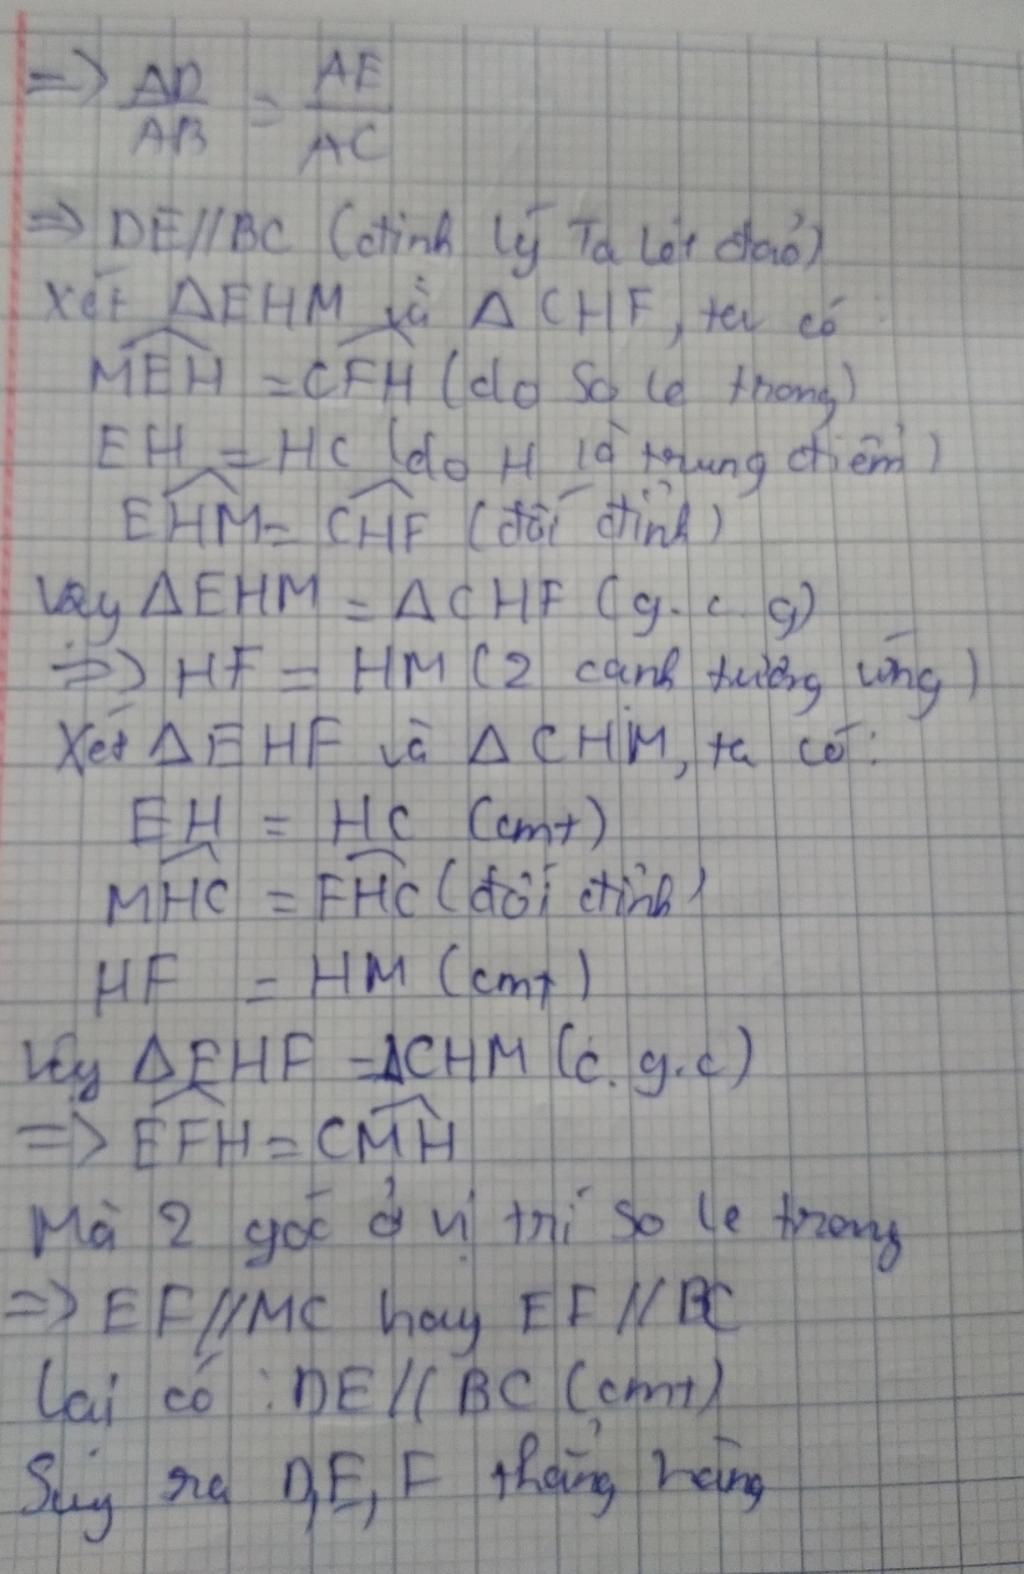 => AD/AB = AE/AC
=> DE//BC (định lý Ta lét đảo)
Xét ΔEHM và ΔCHF, ta có :
MEH = CFH (do so le trong)
EH = HC (do H là trung điểm)
EHM = CHF (đối đỉnh)
Vậy ΔEHM = ΔCHF (g.c.g)
=> HF = HM (2 cạnh tương ứng)
Xét ΔEHF và ΔCHM, ta có :
EH = HC (cmt)
MHC = FHC (đối đỉnh)
HF = HM (cmt)
Vậy ΔEHF = ΔCHM (c.g.c)
=> EFH = CMH
Mà 2 góc ở vị trí so le trong
=> EF//MC hay EF//BC
Lại có : DE//BC (cmt)
Suy ra D, E, F thẳng hàng